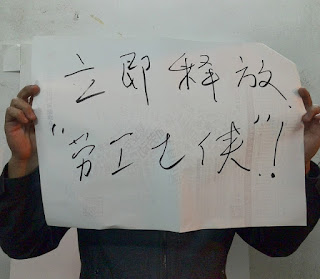 立即释放
“劳工七侠”！